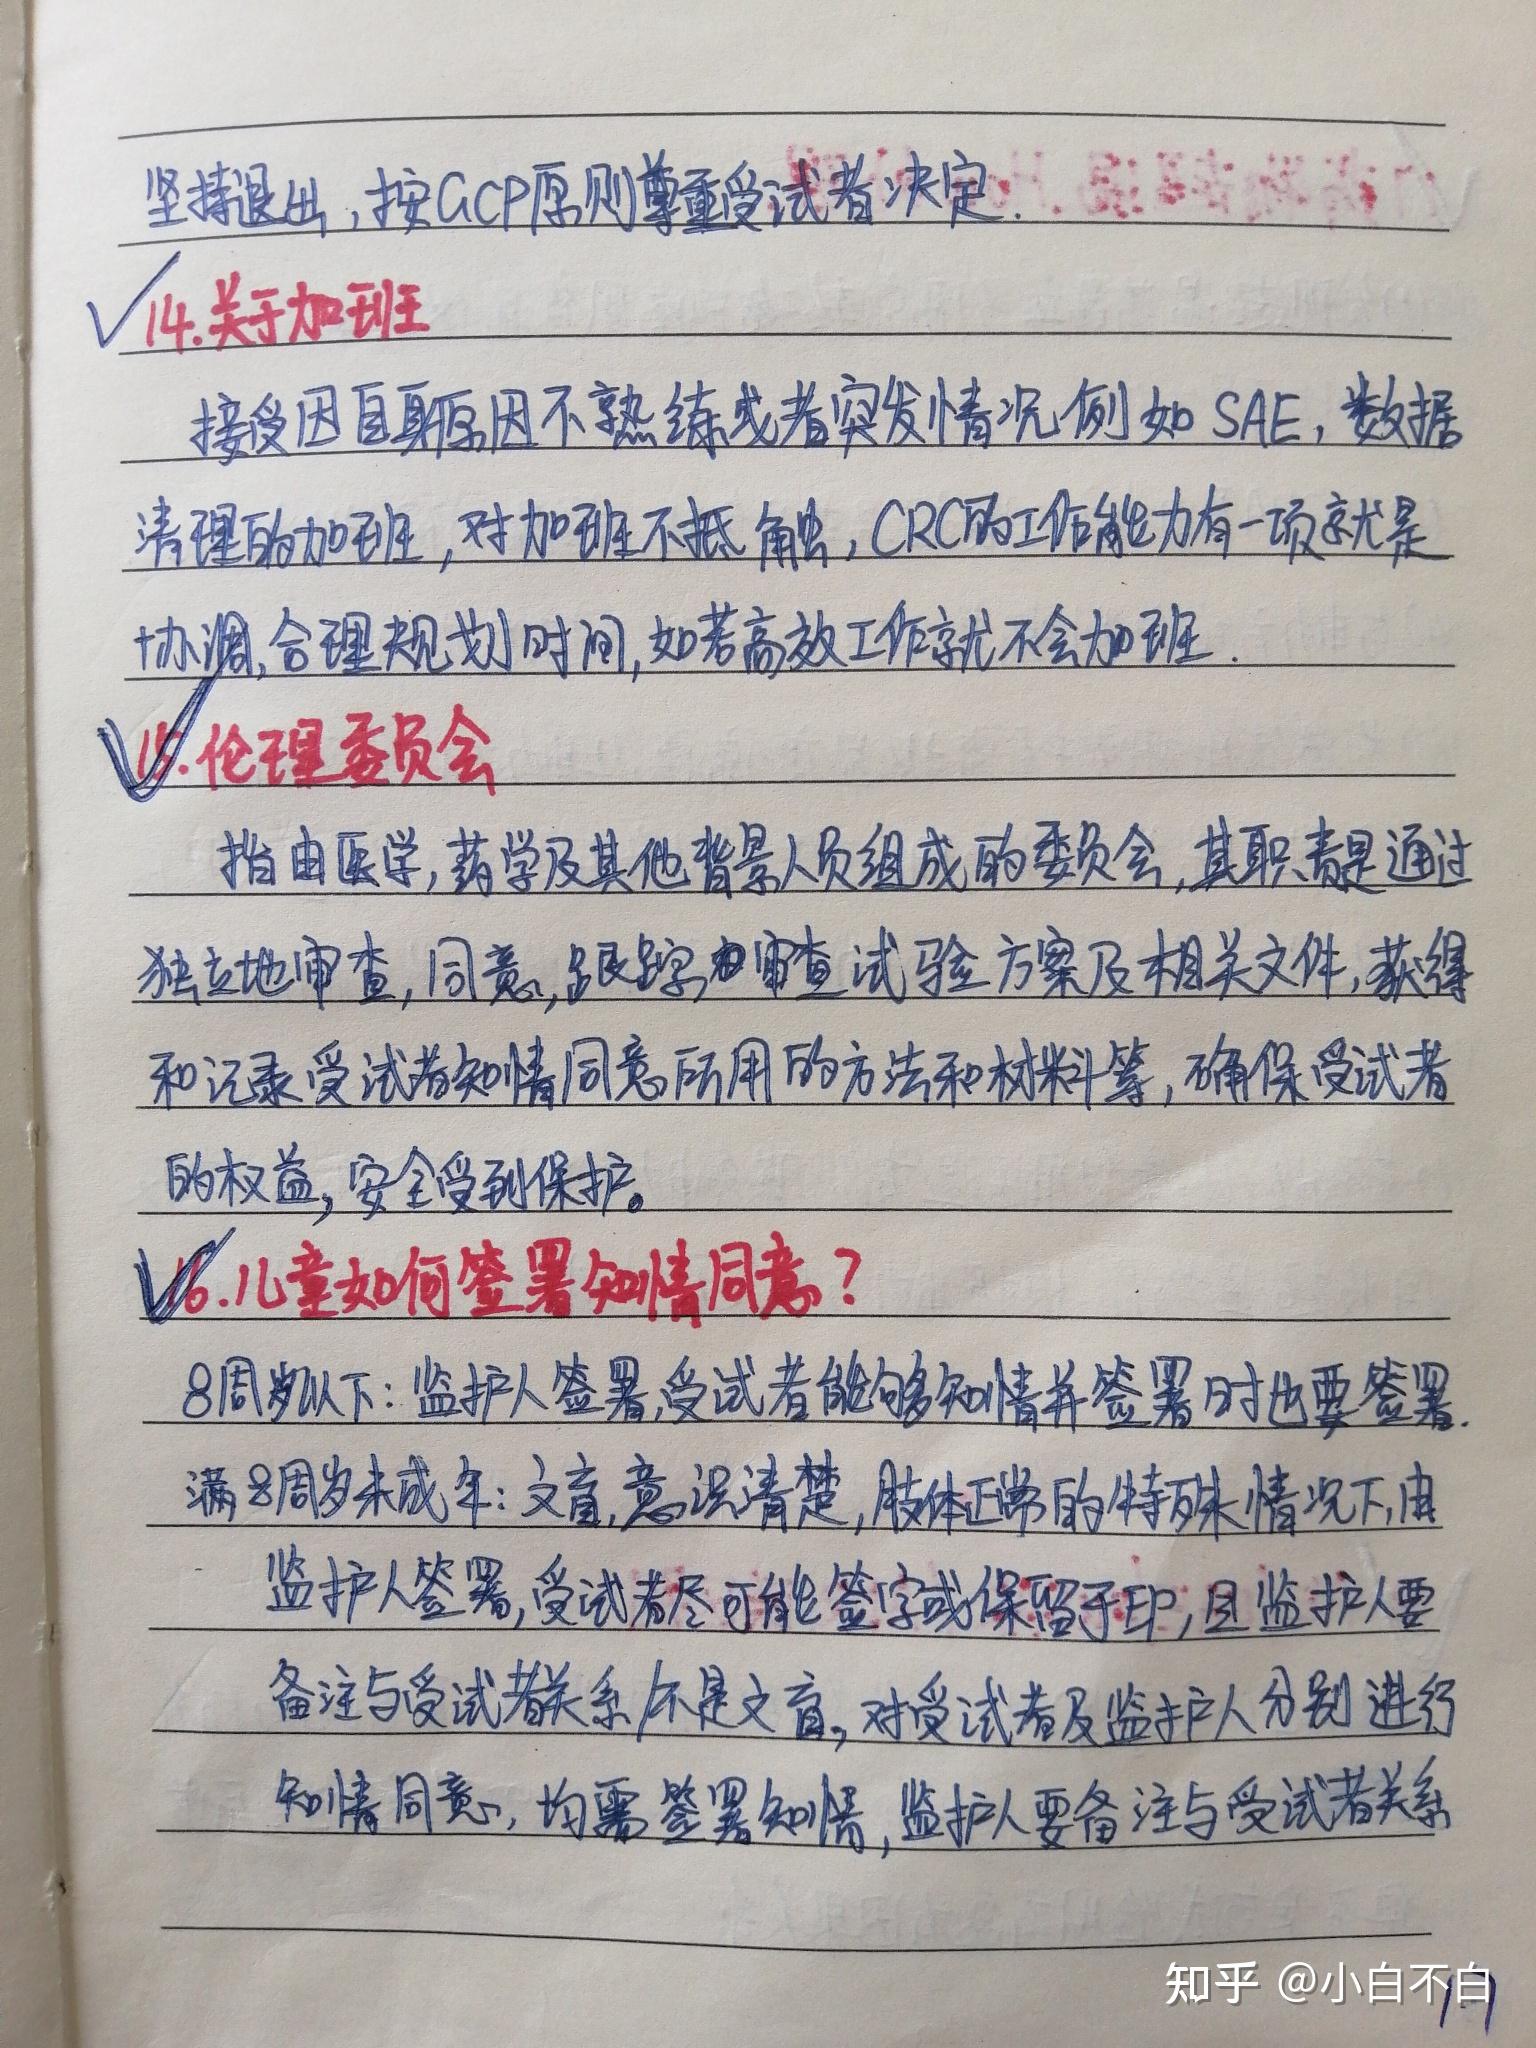 坚持退出，按GCP原则尊重受试者决定.
14.关于加班
接受因自身原因不熟练或者突发情况例如SAE，数据
清理的加班，对加班不抵触，CRC的工作能力有一项就是
协调，合理规划时间，如若高效工作就不会加班.
15.伦理委员会
指由医学，药学及其他背景人员组成的委员会，其职责是通过
独立地审查，同意，跟踪审查试验方案及相关文件，获得
和记录受试者知情同意所用的方法和材料等，确保受试者
的权益，安全受到保护。
16.儿童如何签署知情同意？
8周岁以下：监护人签署，受试者能够知情并签署时也要签署.
满8周岁未成年：文盲，意识清楚，肢体正常的特殊情况下，由
监护人签署，受试者尽可能签字或保留手印，且监护人要
备注与受试者关系/不是文盲，对受试者及监护人分别进行
知情同意，均需签署知情，监护人要备注与受试者关系
知乎 @小白不白
17